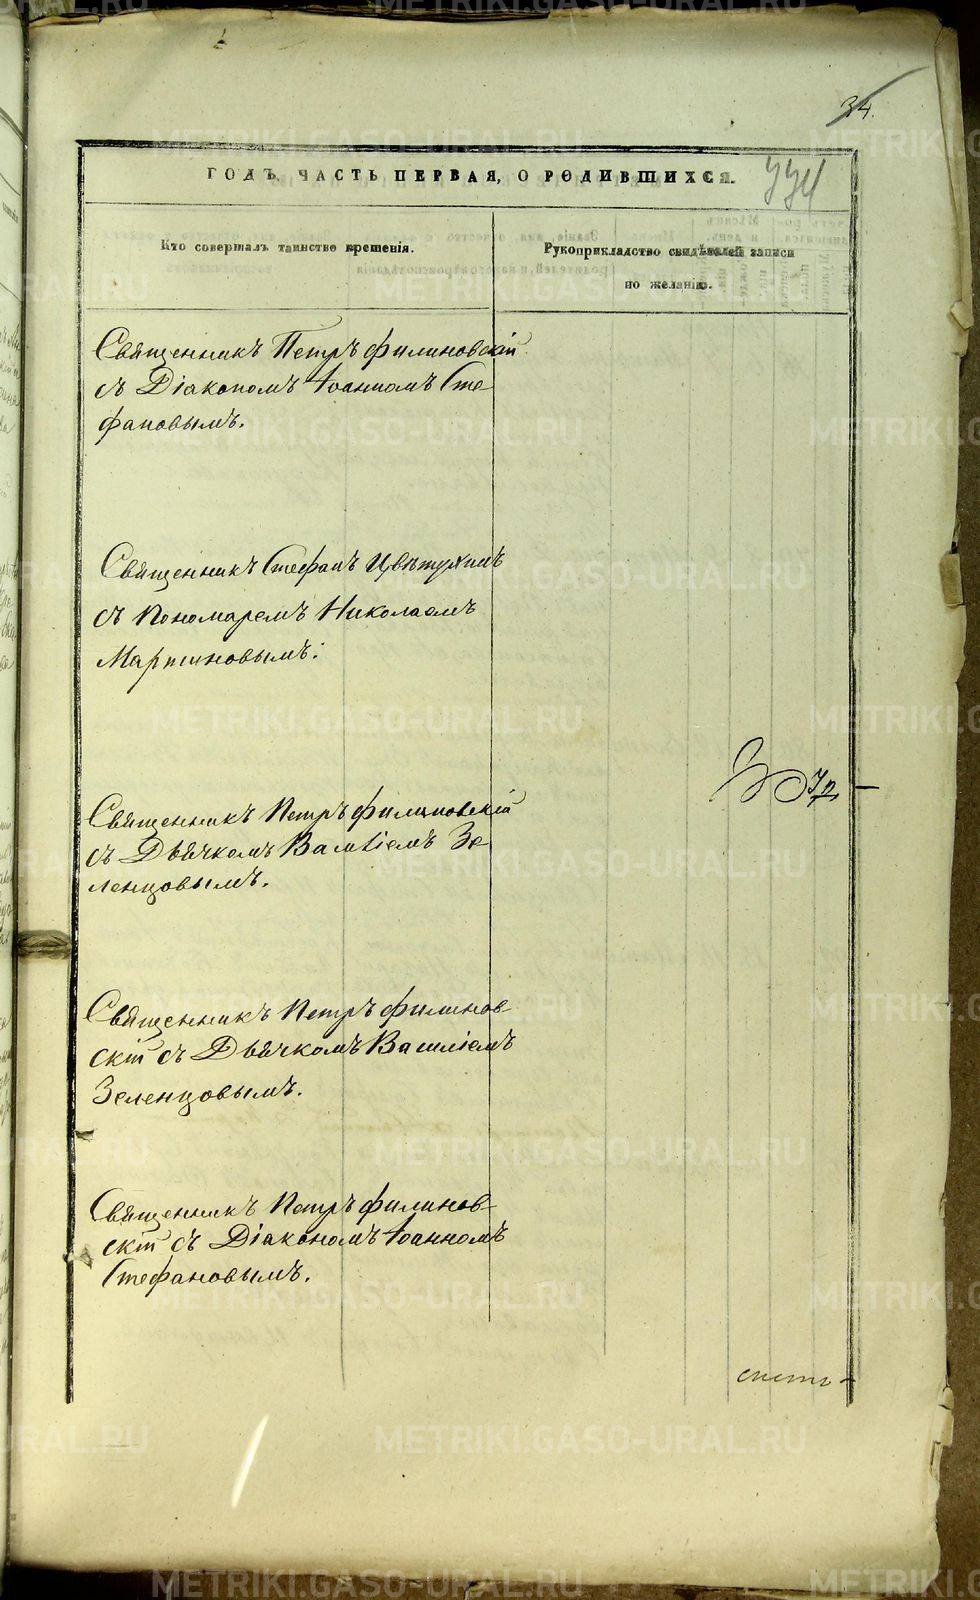 34.
774
ГОДЪ, ЧАСТЬ ПЕРВАЯ, О РОДИВШИХСЯ.
Кто совершалъ таинство крещенія.
Рукоприкладство свидѣтелей записи
по желанію.
Священникъ Петръ Филиновскій
съ Діакономъ Іоанномъ Сте
фановымъ.
Священникъ Стефанъ Цвѣтухинъ
съ Пономаремъ Николаемъ
Мартиновымъ.
Священникъ Петръ Филиновскій
съ Дьячкомъ Василіемъ Зе
ленцовымъ.
Священникъ Петръ Филинов-
скій съ Дьячкомъ Василіемъ
Зеленцовымъ.
Священникъ Петръ Филинов-
скій съ Діакономъ Іоанномъ
Стефановымъ.
METRIKI.GASO-URAL.RU